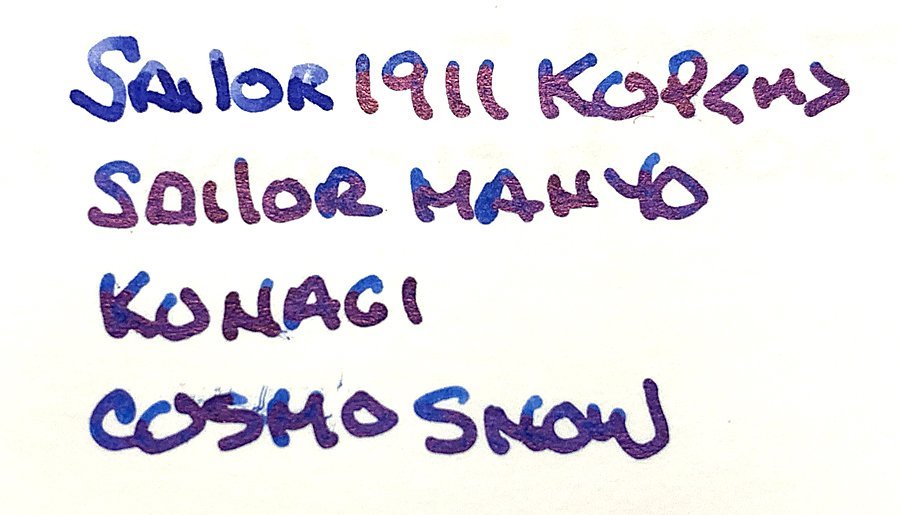 SAILOR 1911 KOP(M)
SAILOR MANYO
KONAGI
COSMO SNOW